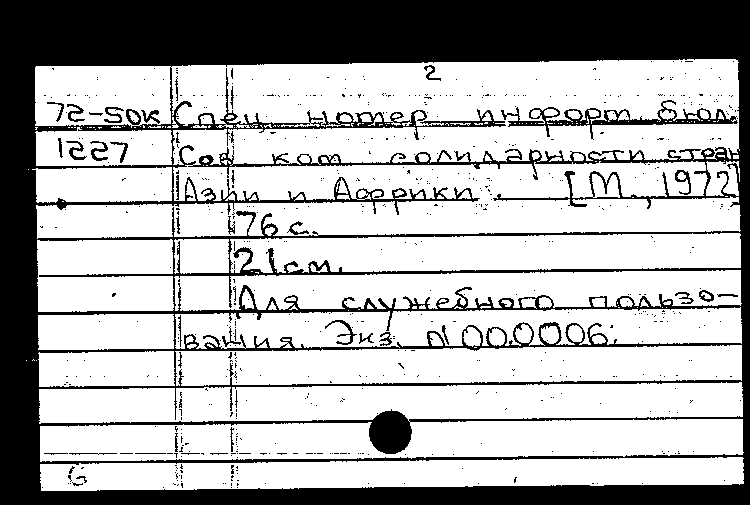 2
72-50к Спец. номер информ. бюл.
1227 Сов. ком. солидарности стран
Азии и Африки. [М., 1972]
76 с.
21 см.
Для служебного пользо-
вания. Экз. N 000006;
G